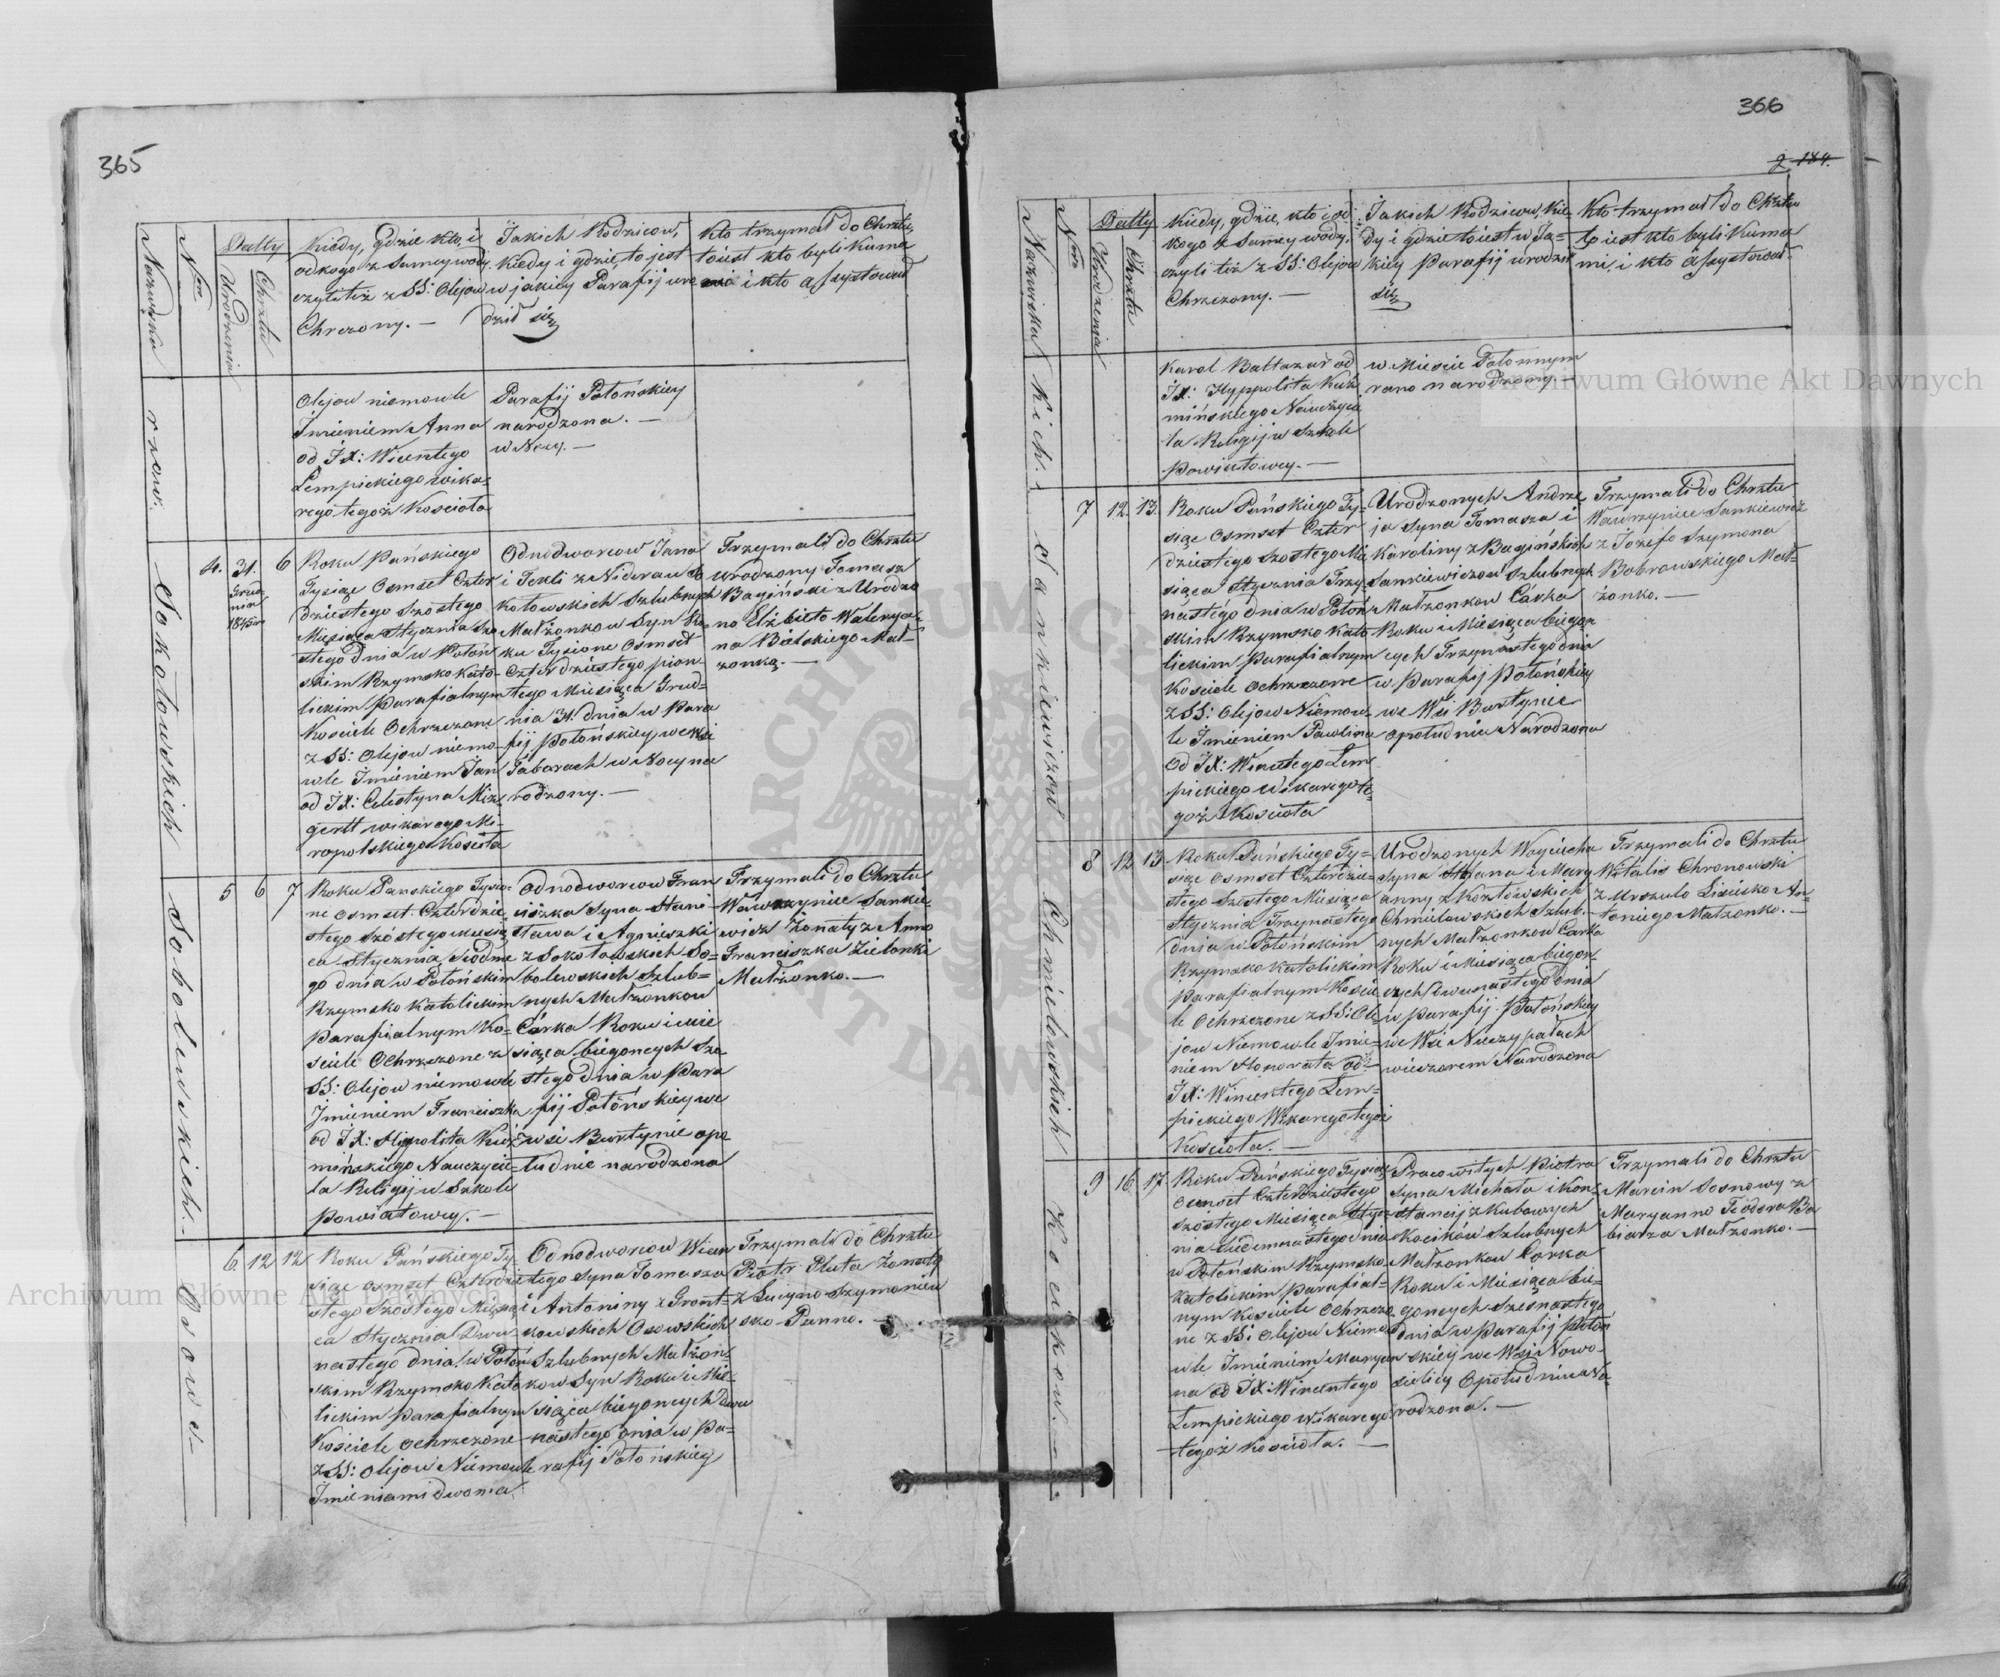 365
Nazwiska
Nm
Datty
Urodzenia
Chrztu
Kiedy, gdzie kto, i
od kogo z Samey wody,
czyli też z SS: Olejow
Chrczony. —
Jakich Rodzicow,
kiedy i gdzie, to jest
w jakiey Parafij uro
dził się
Kto trzymał do Chrztu,
to iest kto byli Kuma
mi i kto assystował
rzow.
Olejow niemowle
Jmieniem Anna
od JX: Wicentego
Lempickiego wika-
rego tegoż Kościoła
Parafij Połońskiey
narodzona. —
w Nocy. —
Sokołowskich
4.
31.
Gru
dnia
1845
6
Roku Pańskiego
Tysiąc Osmset Czter
dziestego szostego
Miesiąca Stycznia Szo
stego dnia w Połoń
skim Rzymsko Kato-
lickim Parafialnym
Kościele Ochrzczone
z SS: Olejow niemo
wle Jmieniem Jan
od JX: Celestyna Miz
gertt wikarego Mi-
ropolskiego Kościoła
Odnodworcow Jana
i Tekli z Niderau So
kołowskich Szlubnych
Małżonkow Syn Ro
ku Tysione Osmset
Czterdziestego pion
tego Miesiąca Grud-
nia 31. dnia w Para
fij Połońskiey, we Wsi
Tabarach w Nocy na
rodzony. —
Trzymali do Chrztu
urodzony Tomasz
Bagiński z Urodzo
no Elżbieto Walerya-
na Bialskiego Mał-
żonką. —
Sobolewskich.
5
6
7
Roku Panskiego Tysio-
ne Osmset Czterdzie
stego Szóstego Miesią
ca Stycznia Siódme
go dnia w Połońskim
Rzymsko Katolickim
Parafialnym Ko-
ściele Ochrzczone z
SS: Olejow niemowle
Jmieniem Franciszka
od JX: Hippolita Kuź
mińskiego Nauczycie-
la Religij w Szkole
Powiatowey. —
Odnodworcow Fran
ciszka Syna Stani
sława i Agnieszki
z Sokołowskich So-
bolewskich Szlub-
nych Małżonkow
Córka Roku i mie
siąca biegoncych Szo-
stego dnia w Para
fij Połońskiey we
wsi Burtynie opo
łudnie narodzona
Trzymali do Chrztu
Wawrzyniec Sankie
wicz Żonaty z Anno
Franciszka Zielonki
Małżonko. —
Osows-
6
12
12
Roku Pańskiego Ty-
siąc osmset Czterdzie
stego Szostego Miesią
ca Stycznia Dwu
nastego dnia w Połoń
skim Rzymsko Kato
lickim Parafialnym
Kościele ochrzczone
z SS: Olejow Niemowle
Jmieniami dwoma
Odnodworcow Wicen
tego Syna Tomasza
i Antoniny z Gront-
kowskich Osowskich
Szlubnych Małżon
kow Syn Roku i Mie-
siąca biegoncych Dwu
nastego dnia w Pa-
rafij Połońskiey
Trzymali do Chrztu
Piotr Pluta Żonaty
z Lucyno Szymonieu
sko Panno. —
366
184.
Nazwiska
Nm
Datty
Urodzenia
Chrztu
Kiedy, gdzie, kto i od
kogo z Samey wody,
czyli też z SS: Olejow
Chrzczony. —
Jakich Rodzicow, Kie
dy i gdzie to iest w Ja-
kiey Parafij urodził
się
Kto trzymał do Chrztu
to iest kto byli Kuma
mi, i kto assystował
kich.
Karol Baltazar od
JX: Hyppolita Kuź
mińskiego Nauczycie
la Religij w Szkole
Powiatowey. —
w Mieście Połonnym
rano narodzony. —
Sankiewiczow
7
12.
13.
Roku Pańskiego Ty-
siąc Osmset Czter
dziestego Szostego Mie
siąca Stycznia Trzy-
nastego dnia w Połoń
skim Rzymsko Kato
lickim Parafialnym
Kościele Ochrzczone
z SS: Olejow Niemow-
le Jmieniem Pawlina
Od JX: Wincętego Lem
pickiego Wikarego te-
goż Kościoła
Urodzonych Andrze
ja Syna Tomasza i
Karoliny z Bagińskich
Sankiewiczow Szlubnych
Małżonkow Cárka
Roku i Miesiąca biegon
cych Trzynastego dnia
w Parafij Połońskiey
we Wsi Burtynie
opołudniu Narodzona
Trzymali do Chrztu
Wawrzyniec Sankiewicz
z Jozefo Szymona
Bobrowskiego Mał-
żonko. —
Chmielowskich
8
12
13
Roku Pańskiego Ty-
siąc Osmset Czterdzie-
stego Szostego Miesiąca
Stycznia Trzynastego
dnia w Połońskim
Rzymsko Katolickim
Parafialnym Koscie
le Ochrzczone z SS: Ole-
jow Niemowle Jmie-
niem Honorata od
JX: Wincentego Lem-
pickiego Wikarego tegoż
Kościoła. —
Urodzonych Woyciecha
Syna Stefana i Mary
anny z Kozłowskich
Chmielowskich Szlub-
nych Małżonkow Carka
Roku i Miesiąca biegon
cych Dwunastego dnia
w Parafij Połońskiey
we Wsi Nieczypałach
wieczorem Narodzona
Trzymali do Chrztu
Witalis Chronowski
z Urszulo Lisiecko An-
toniego Małżonko. —
Kocikow.
9
16
17
Roku Pańskiego Tysiąc
Osmset Czterdziestego
Szostego Miesiąca Stycz
nia Siedemnastego dnia
w Połońskim Rzymsko
Katolickim Parafial-
nym Kościele Ochrzczo
ne z SS: Olejow Niemo
wle Jmieniem Maryan
na od JX: Wincentego
Lempickiego Wikarego
tegoż Kościoła. —
Pracowitych Piotra
Syna Michała i Kon
stancij z Kubowych
Kocików Szlubnych
Małżonkow Corka
Roku i Miesiąca bie-
goncych Szesnastego
dnia w Parafij Połoń
skiey we Wsi Nowo-
sielicy Opołudniu Na-
rodzona. —
Trzymali do Chrztu
Marcin Sosnowy z
Maryanno Teodora Ba
biarza Małżonko. —
Archiwum Główne Akt Dawnych
Archiwum Główne Akt Dawnych
ARCHIWUM GŁÓWNE AKT DAWNYCH